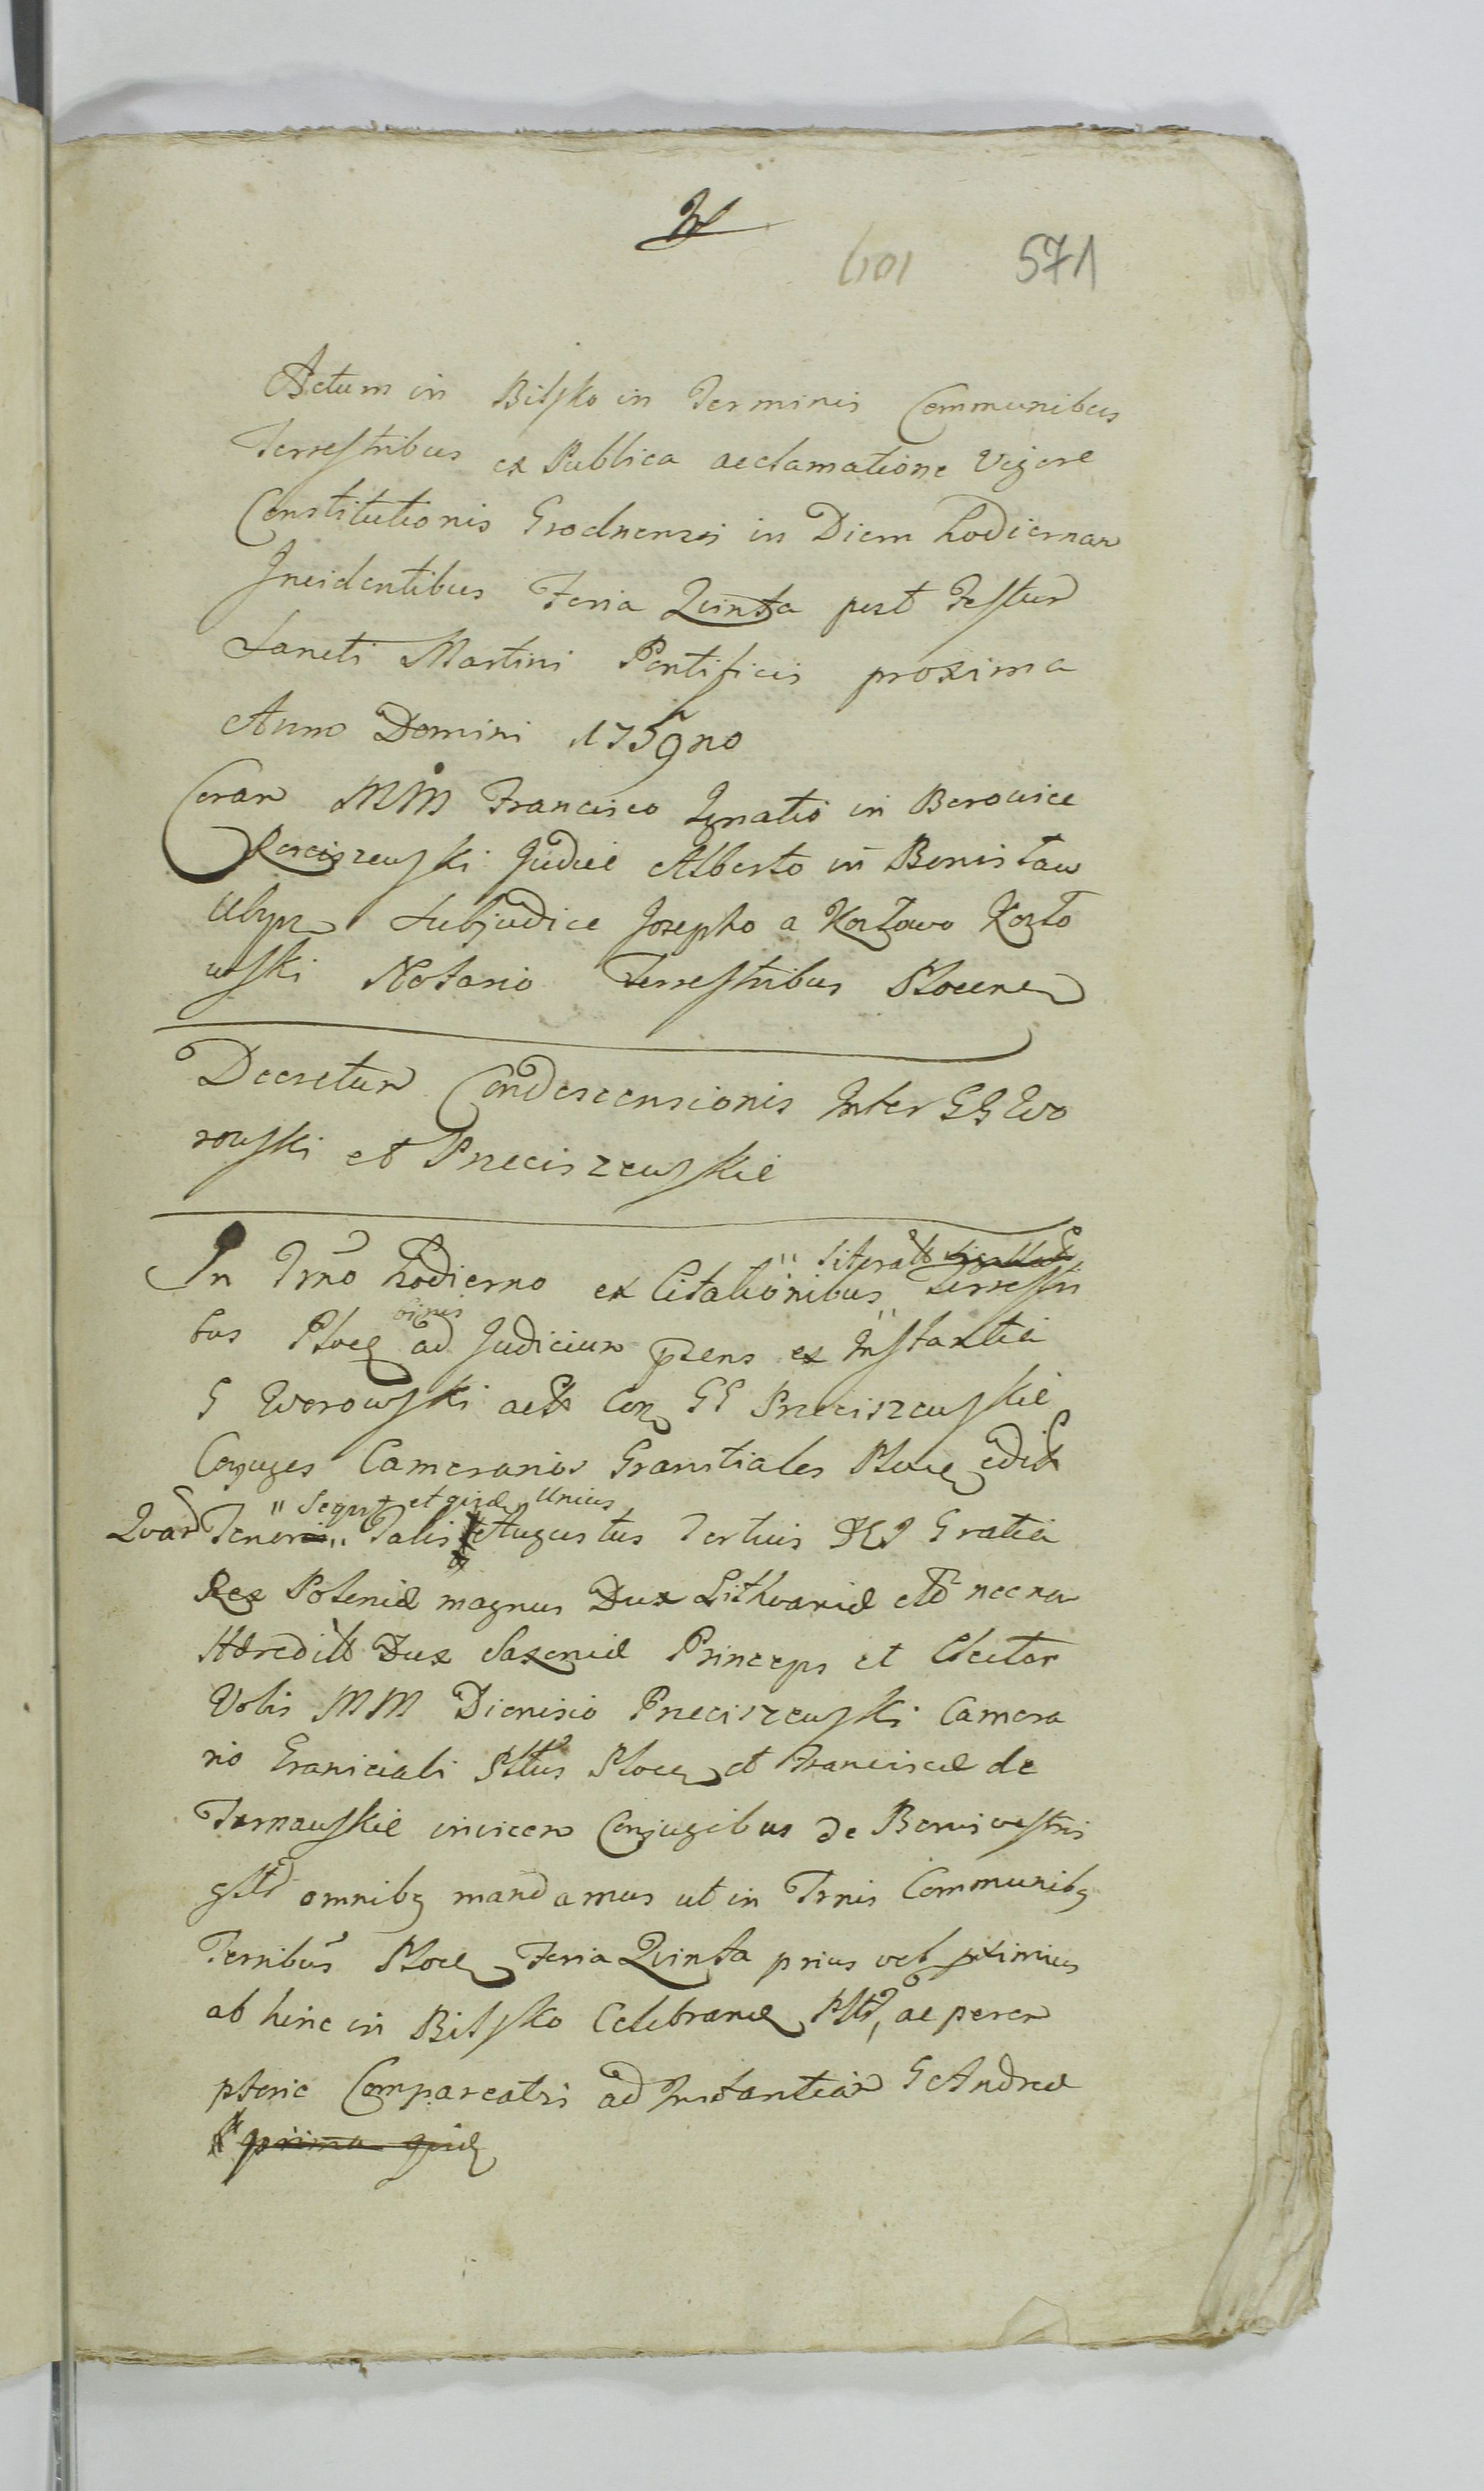 601 571
Actum in Bilsko in Terminis Communibus
Terrestribus ex Publica acclamatione Vigore
Constitutionis Grodnensis in Diem hodiernam
Incidentibus Feria Quinta post Festum
Sancti Martini Pontificis proxima
Anno Domini 1759no
Coram MM Francisco Ignatio in Borowice
Kosciszewski Judice Alberto in Bonisław
Ubysz Subjudice Josepho a Kozłowo Kozło
wski Notario Terrestribus Plocen
Decretum Condescensionis Inter GG Wo
rowski et Przeciszewskie
In Trno hodierno ex Citationibus " Literalib Terrestri
bus Plocen binis ad Judicium pzens ex Instantia
G Worowski act Con GG Przeciszewskie
Conjuges Camerarios Granitiales Plocen edit
Quar Tenor " Sequr et quid Unius
Talis Augustus Tertius D G Gratia
Rex Poloniæ magnus Dux Lithvaniæ etc necnon
Hæredit Dux Saxoniæ Princeps et Elector
Vobis MM Dionisio Przeciszewski Camera
rio Graniciali Pltus Plocen et Franciscæ de
Tarnawskie invicem Conjugibus de Bonis vestris
gnltr omnibq mandamus ut in Trnis Communibq
Terribus Plocen Feria Quinta prius vel pximius
ab hinc in Bilsko Celebrand Pltr, ac perem
ptorie Compareatis ad Instantiam G Andreæ
prima quid